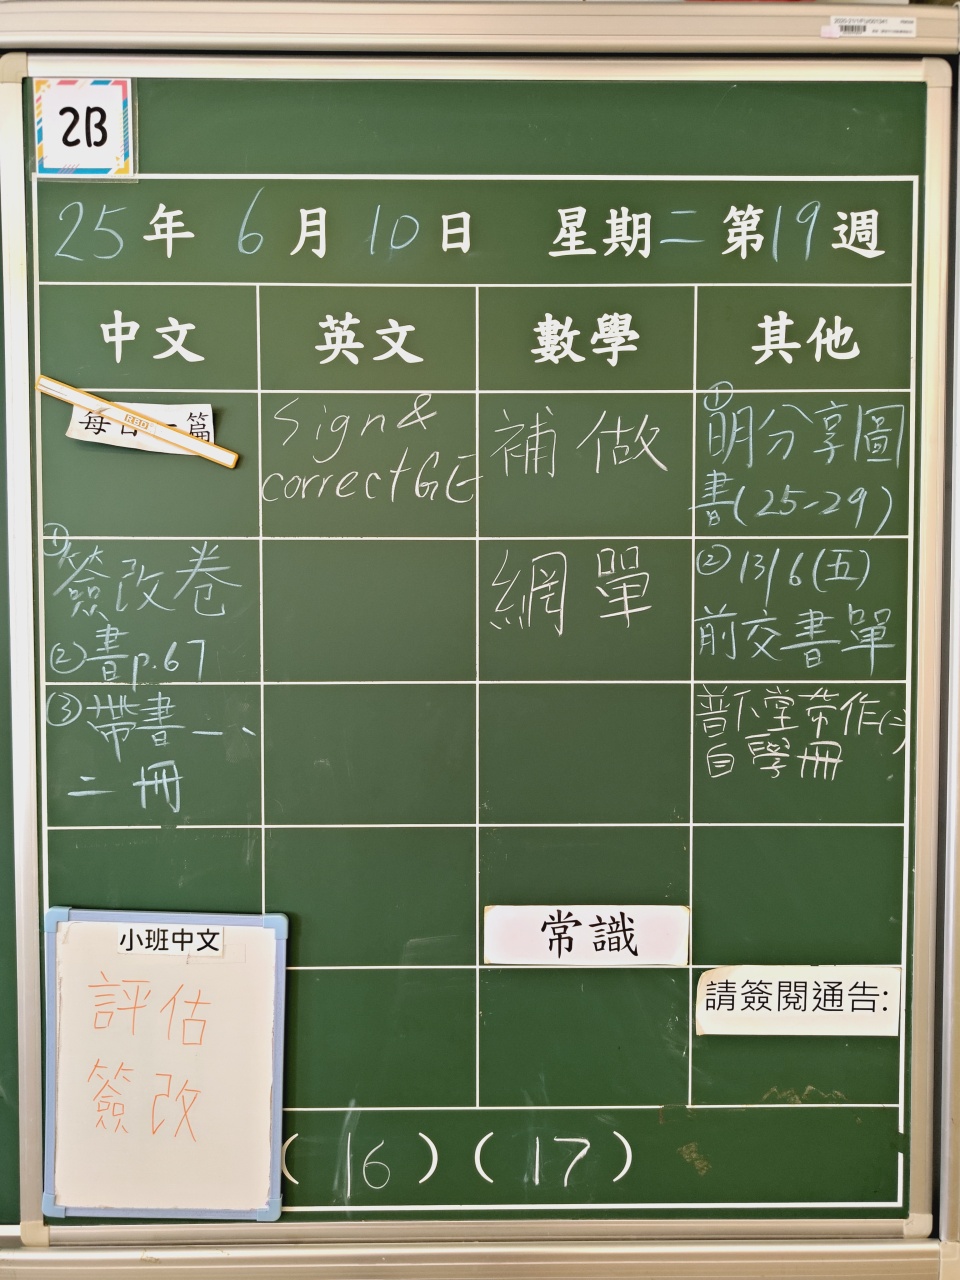 2B
25年 6月10日 星期二 第19週
中文 英文 數學 其他
每日一篇
①簽改卷
②書p.67
③帶書一、
二冊
Sign &
correct GE
補做
網單
①明分享圖
書(25-29)
②13/6(五)
前交書單
普下堂帶作(二)
自學冊
常識
請簽閱通告:
小班中文
評估
簽改
(16)(17)